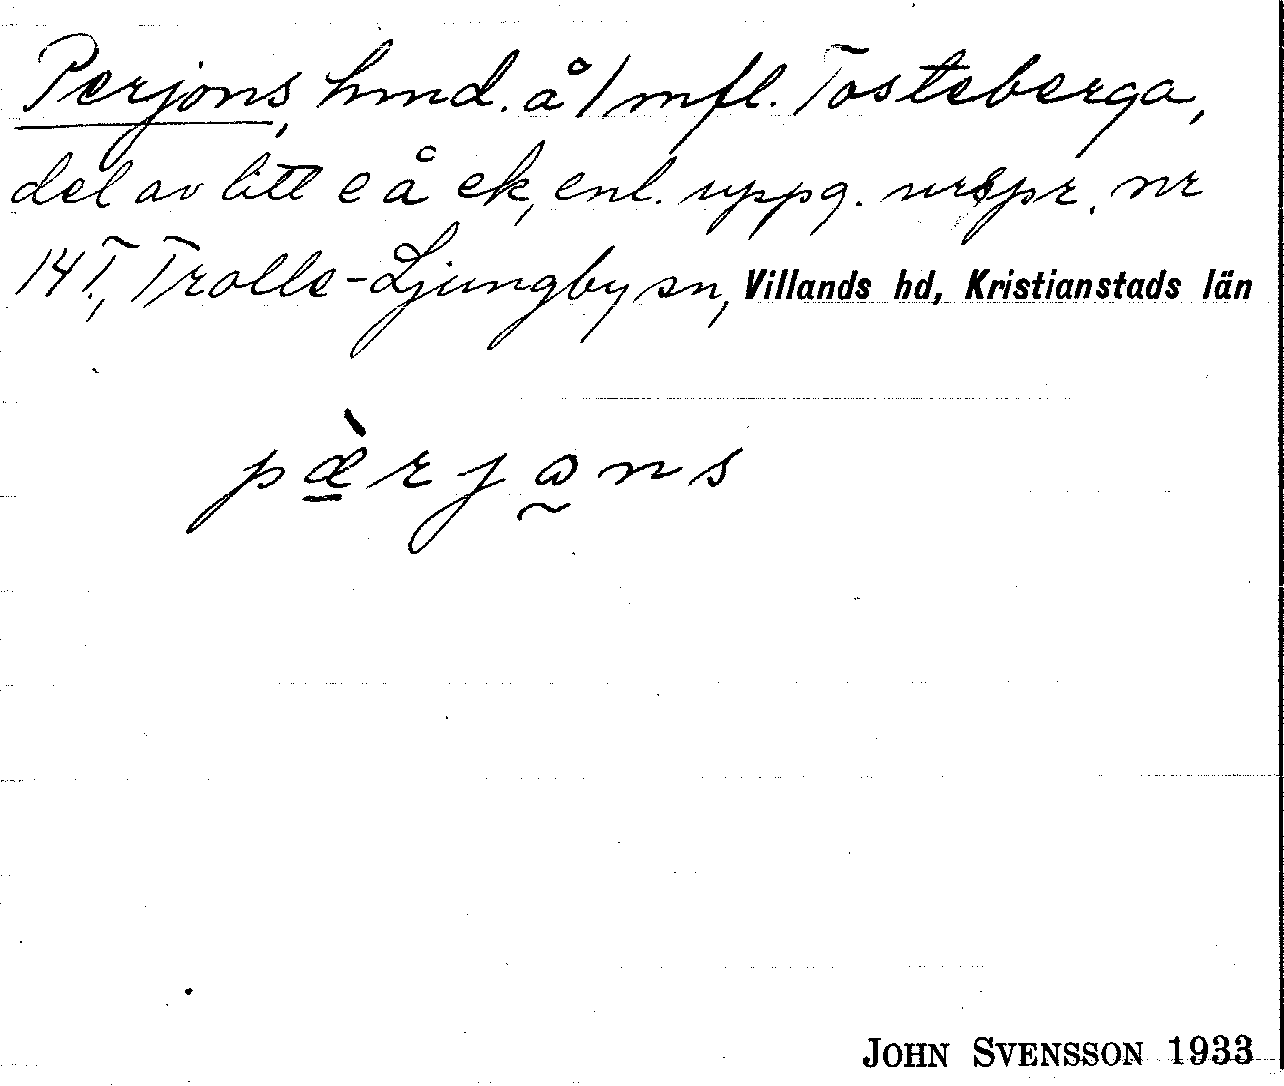 Perjons, hmd. å 1 mfl. Tosteberga,
del av litt e å ek, enl. uppg. urspr. nr
14 T., Trolle-Ljungby sn, Villands hd, Kristianstads län
pæ̀rjɔns
JOHN SVENSSON 1933